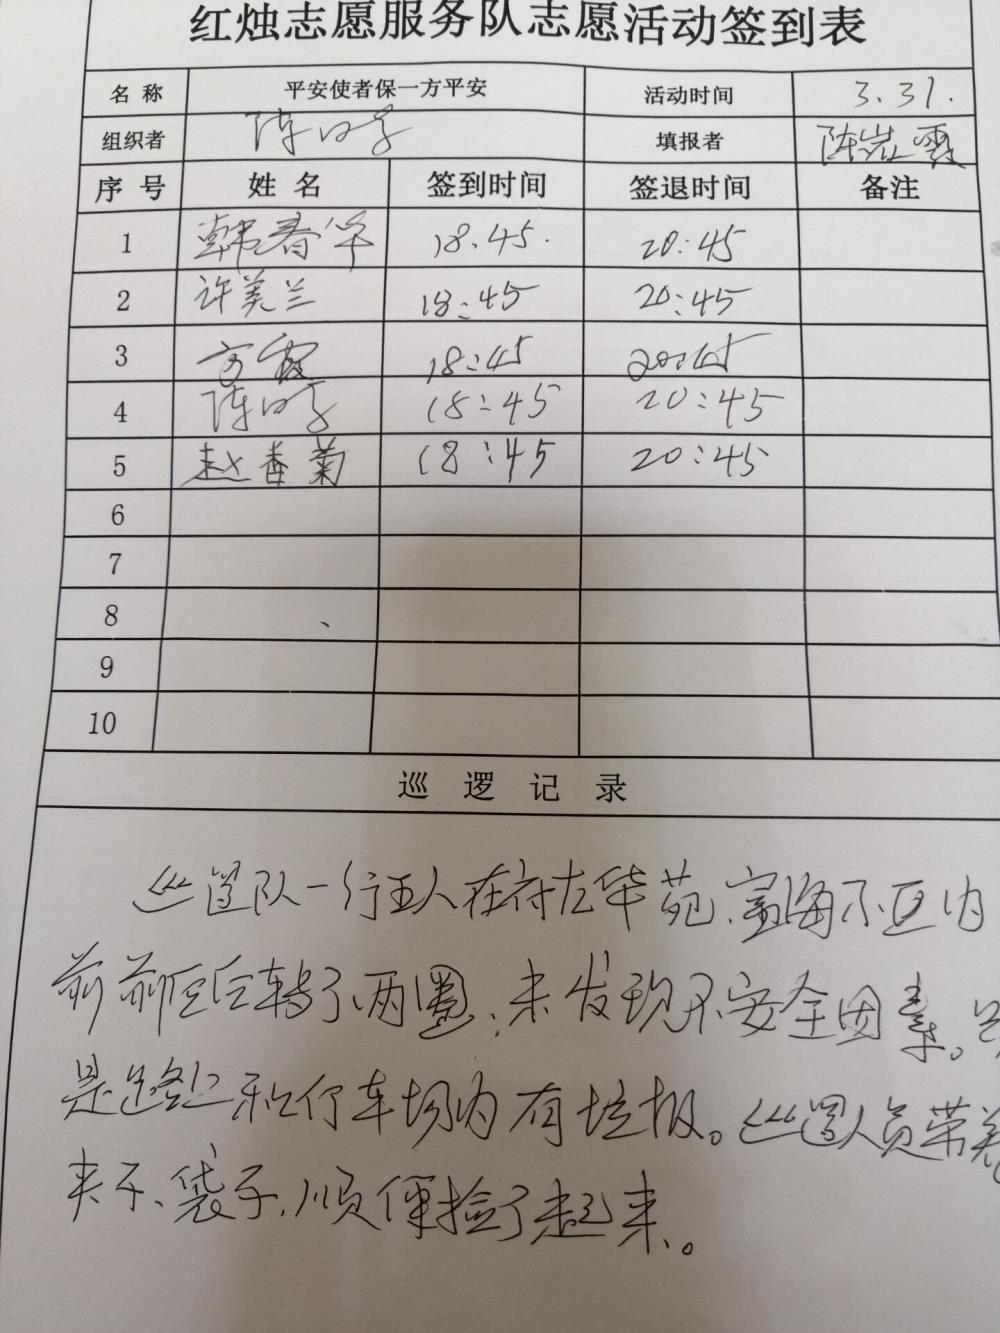 红烛志愿服务队志愿活动签到表
名 称 平安使者保一方平安 活动时间 3.31.
组织者 陈 填报者 陈岩霞
序 号 姓 名 签到时间 签退时间 备注
1 韩春华 18.45. 20:45
2 许美兰 18:45 20:45
3 方霞 18:45 20:45
4 陈 18:45 20:45
5 赵香菊 18:45 20:45
6
7
8
9
10
巡 逻 记 录
巡逻队一行五人在府左华苑、富海小区内
前前后后转了两圈,未发现不安全因素。只
是路上和停车场内有垃圾。巡逻人员带着
夹子、袋子,顺便捡了起来。